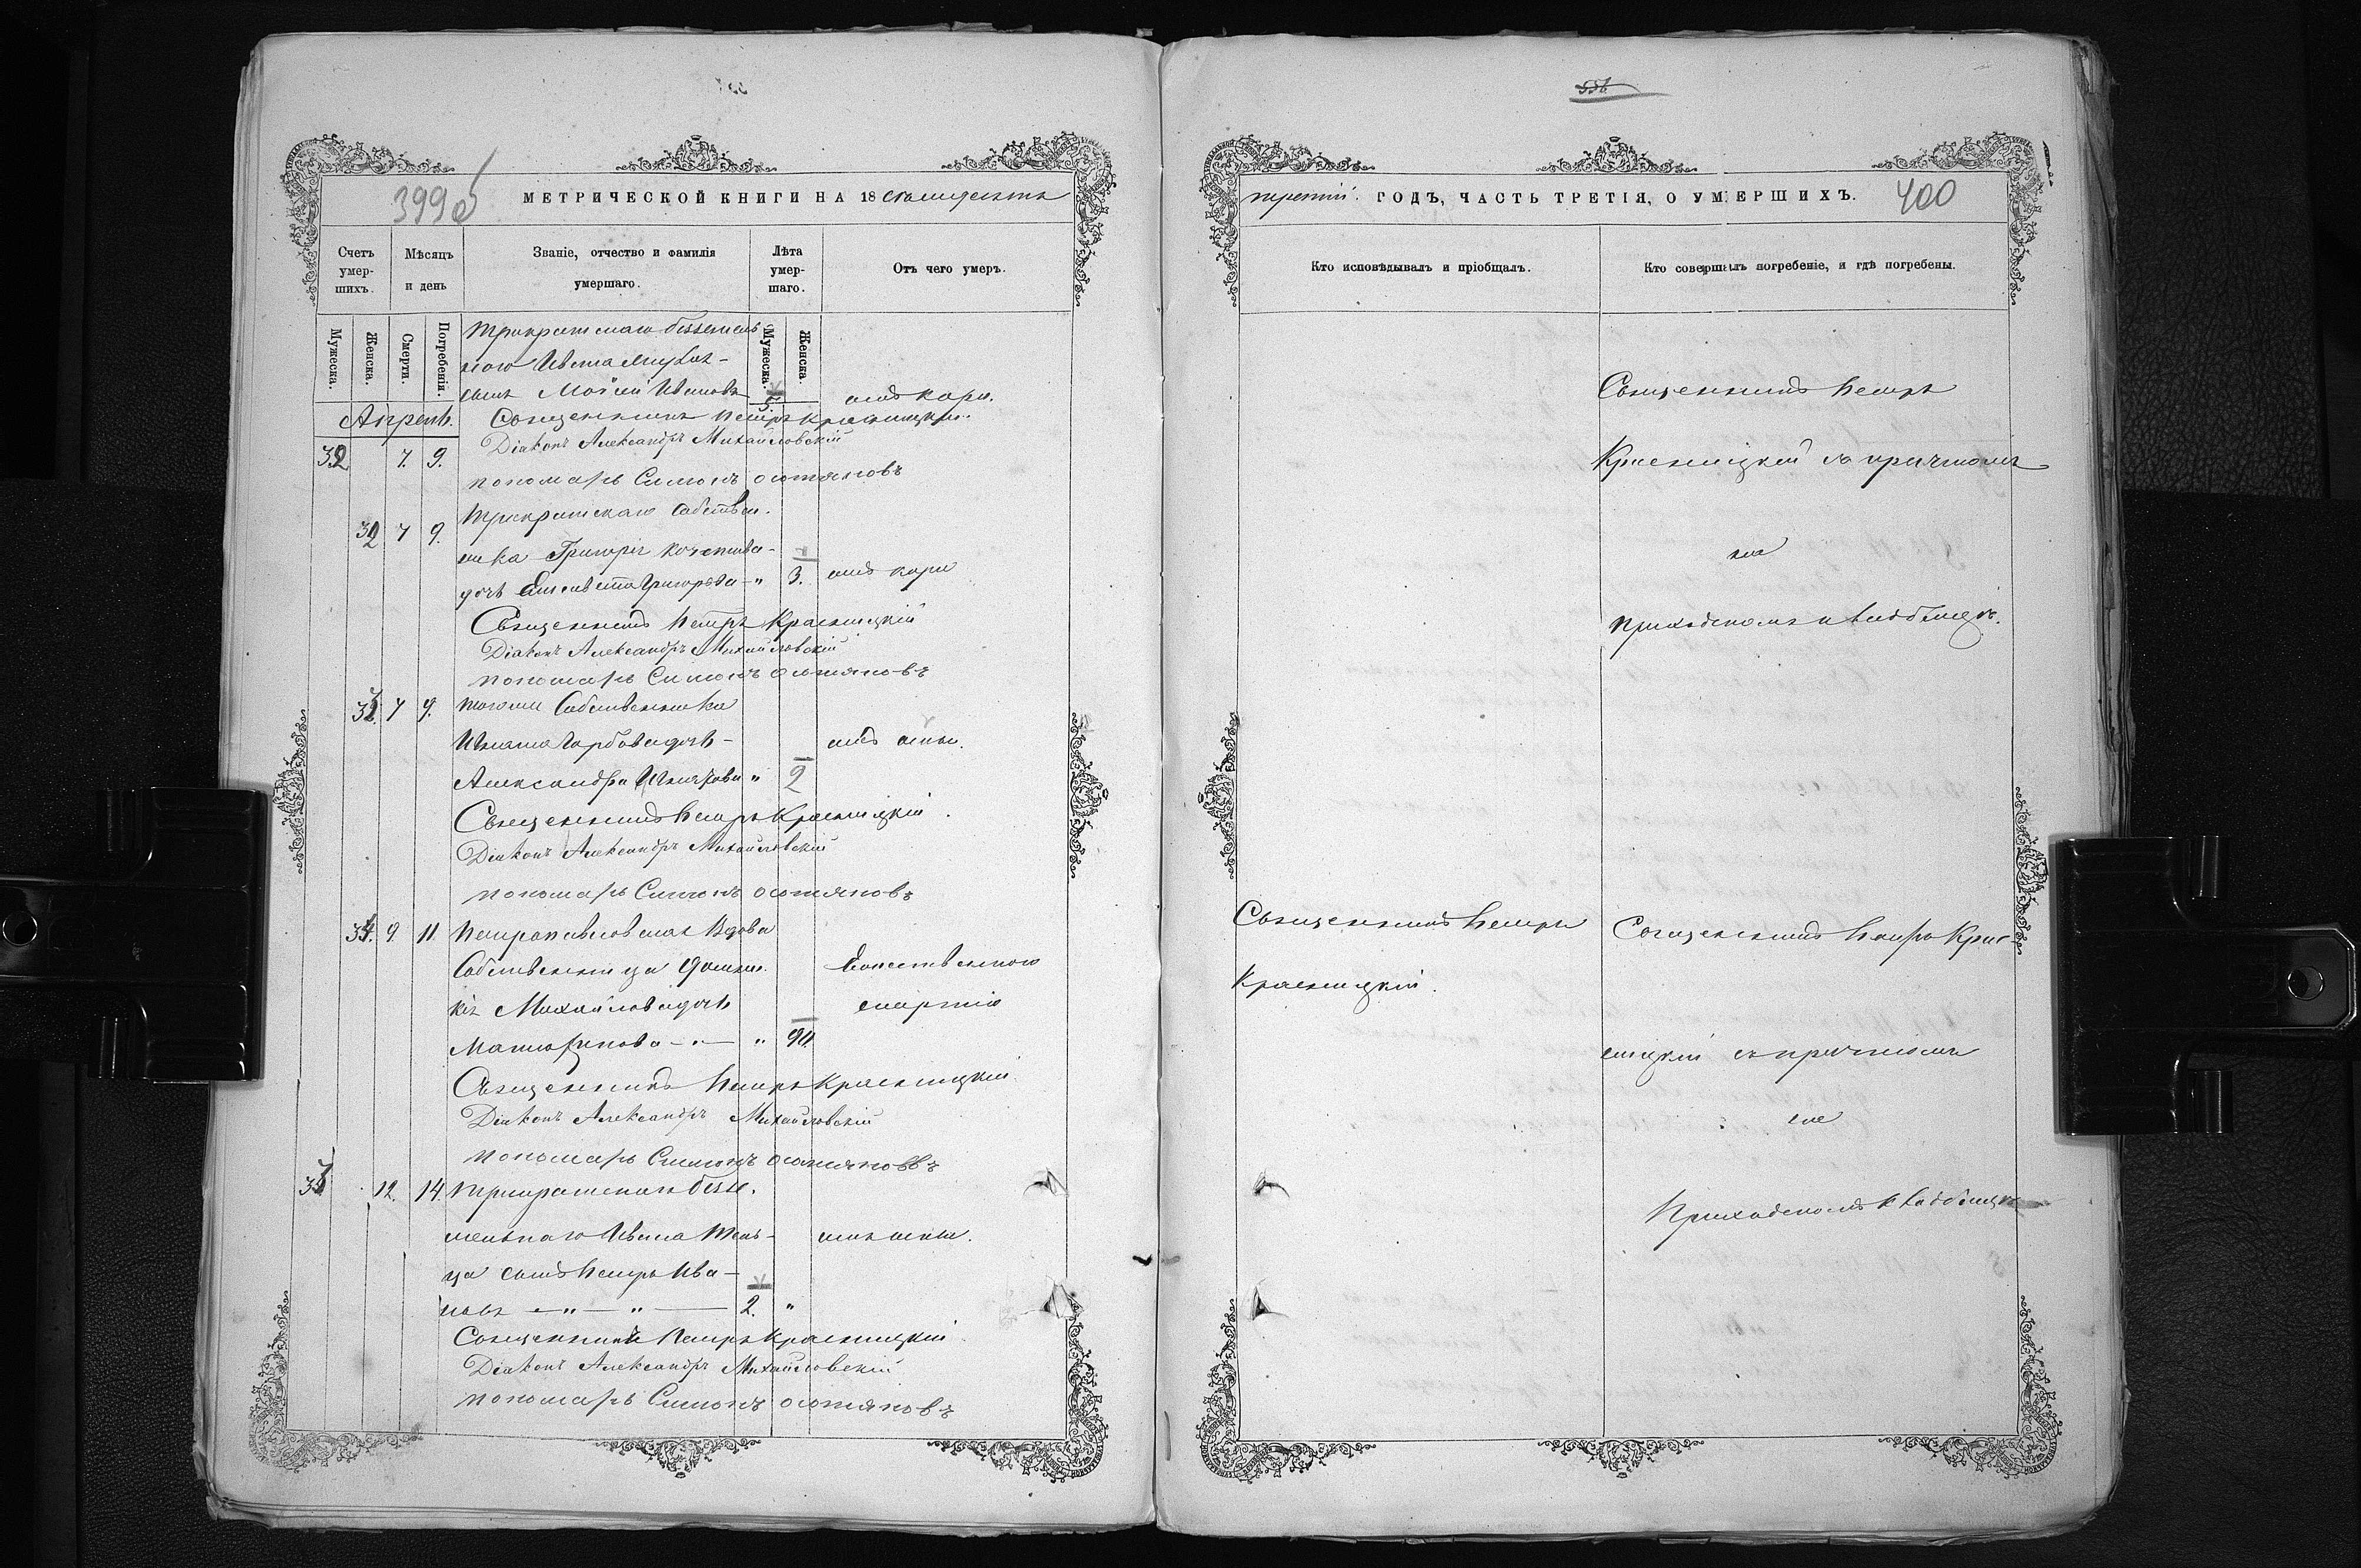 399 об
МЕТРИЧЕСКОЙ КНИГИ НА 18 семьдесятъ
Счетъ умершихъ.
Мѣсяцъ и день
Званіе, отчество и фамилія умершаго.
Лѣта умершаго.
Отъ чего умеръ.
Мужеска.
Женска.
Смерти.
Погребенія.
Мужеска.
Женска.
Трикратскаго безземель
наго Ивана
сынъ Моѵсей Ивановъ 5 отъ кори.
Апрель.
Священникъ Петръ Красницкій
Діаконъ Александръ Михайловскій
32 7. 9.
пономарь Симонъ
32 7 9.
Трикратскаго собствен.
ника Григорія
дочь Елисавета Григорьева - " 3. отъ кори
Священникъ Петръ Красницкій
Діаконъ Александръ Михайловскій
пономарь Симонъ
33. 7 9. Тогоже Собственника
Игната Горбова дочь - отъ оспы.
Александра Игнатова " 2
Священникъ Петръ Красницкій.
Діаконъ Александръ Михайловскій
пономарь Симонъ
34. 9. 11. Петропавловская Вдова
Собственница Домни- Естественною
кія Михайлова дочь смертію
- " - " 90.
Священникъ Петръ Красницкій.
Діаконъ Александръ Михайловскій
пономарь Симонъ
33 12. 14. Трикратскаго безз.
мельнаго Ивана отъ оспы.
ца сынъ Петръ Ива-
новъ - " - " - 2. "
Священникъ Петръ Красницкій
Діаконъ Александръ Михайловскій
пономарь Симонъ
556
третій ГОДЪ, ЧАСТЬ ТРЕТІЯ, О УМЕРШИХЪ. 400
Кто исповѣдывалъ и пріобщалъ.
Кто совершалъ погребеніе, и гдѣ погребены.
Священникъ Петръ
Красницкій съ причтомъ
на
приходскомъ кладбищѣ.
Священникъ Петръ
Красницкій.
Священникъ Петръ Крас-
ницкій съ причтомъ
на
Приходскомъ кладбищѣ